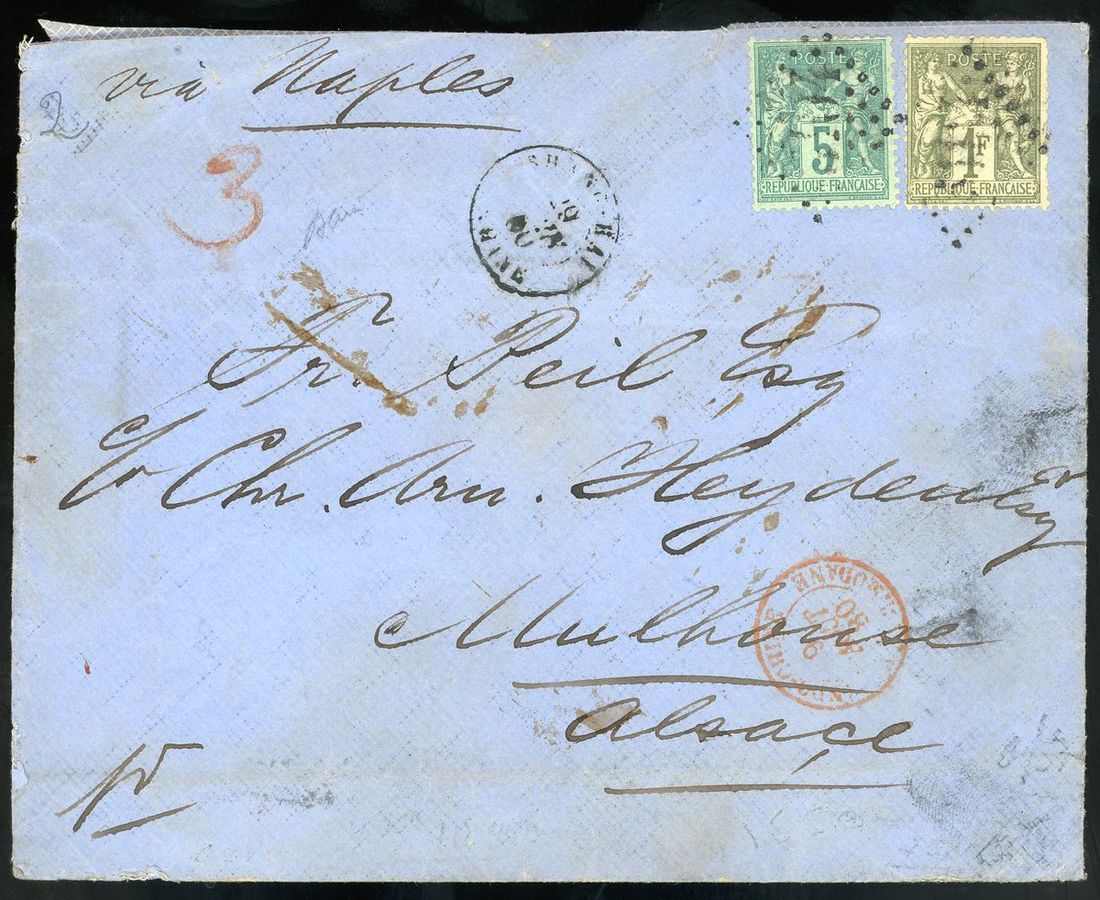 via Naples
2
3
POSTE
5
REPUBLIQUE FRANÇAISE
POSTE
1F
REPUBLIQUE FRANÇAISE
SHANG-HAI
CHINE
Fr. Peil Esq
c/o Chr. Arn. Heyden Esq
Mulhouse
Alsace
MODANE
80